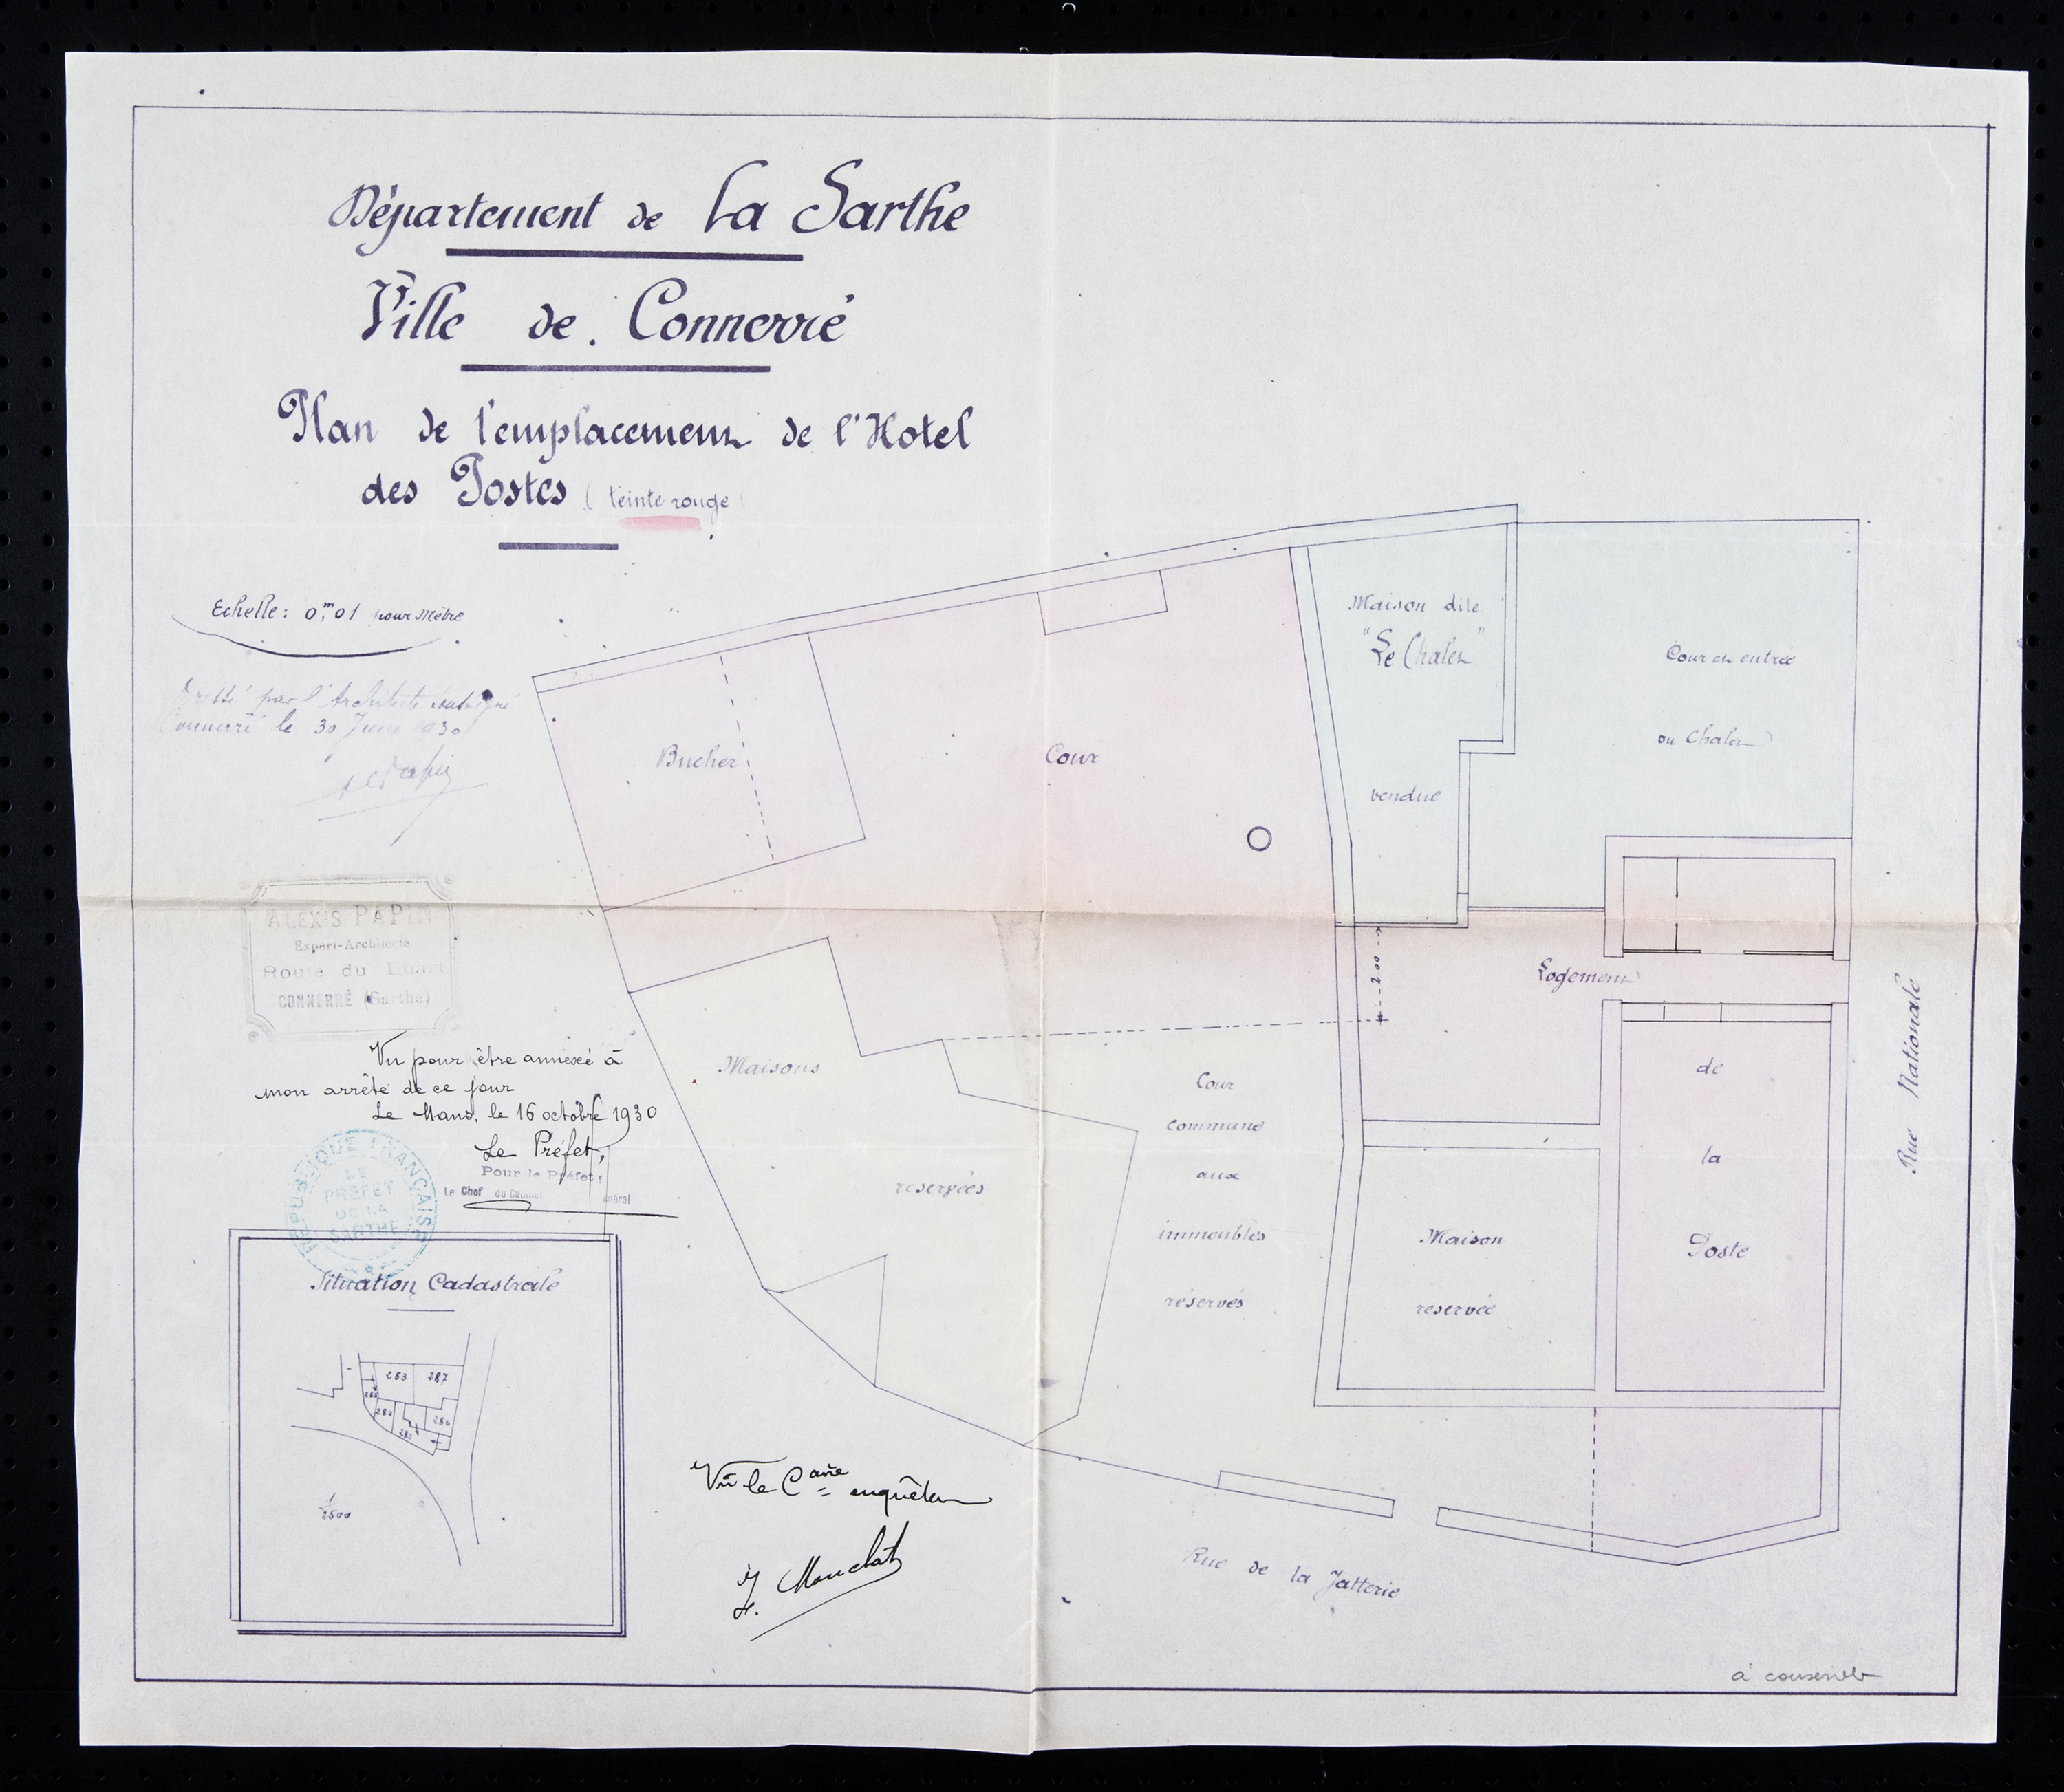 Département de La Sarthe
Ville de Connerré
Plan de l'emplacement de l'Hotel
des Postes (teinte rouge)
Echelle: 0,m01 pour Mètre
Dressé par l'Architecte soussigné
Connerré le 30 Juin 1930
ALEXIS PAPIN
Expert-Architecte
Route du Luart
CONNERRÉ (Sarthe)
Vu pour être annexé à
mon arrêté de ce jour
Le Mans, le 16 octobre 1930
Le Préfet,
Pour le Préfet:
Le Chef du Cabinet
RÉPUBLIQUE FRANÇAISE
LE
PRÉFET
DE LA
SARTHE
Situation Cadastrale
283 287
286
1/2500
Vu le Care enquêteur
Maison dite
"Le Chalet"
vendue
Cour et entrée
du Chalet
Bucher
Cour
2.00
Logement
de
la
Poste
Maisons
reservées
Cour
commune
aux
immeubles
réservés
Maison
reservée
Rue Nationale
Rue de la Jatterie
à conserver